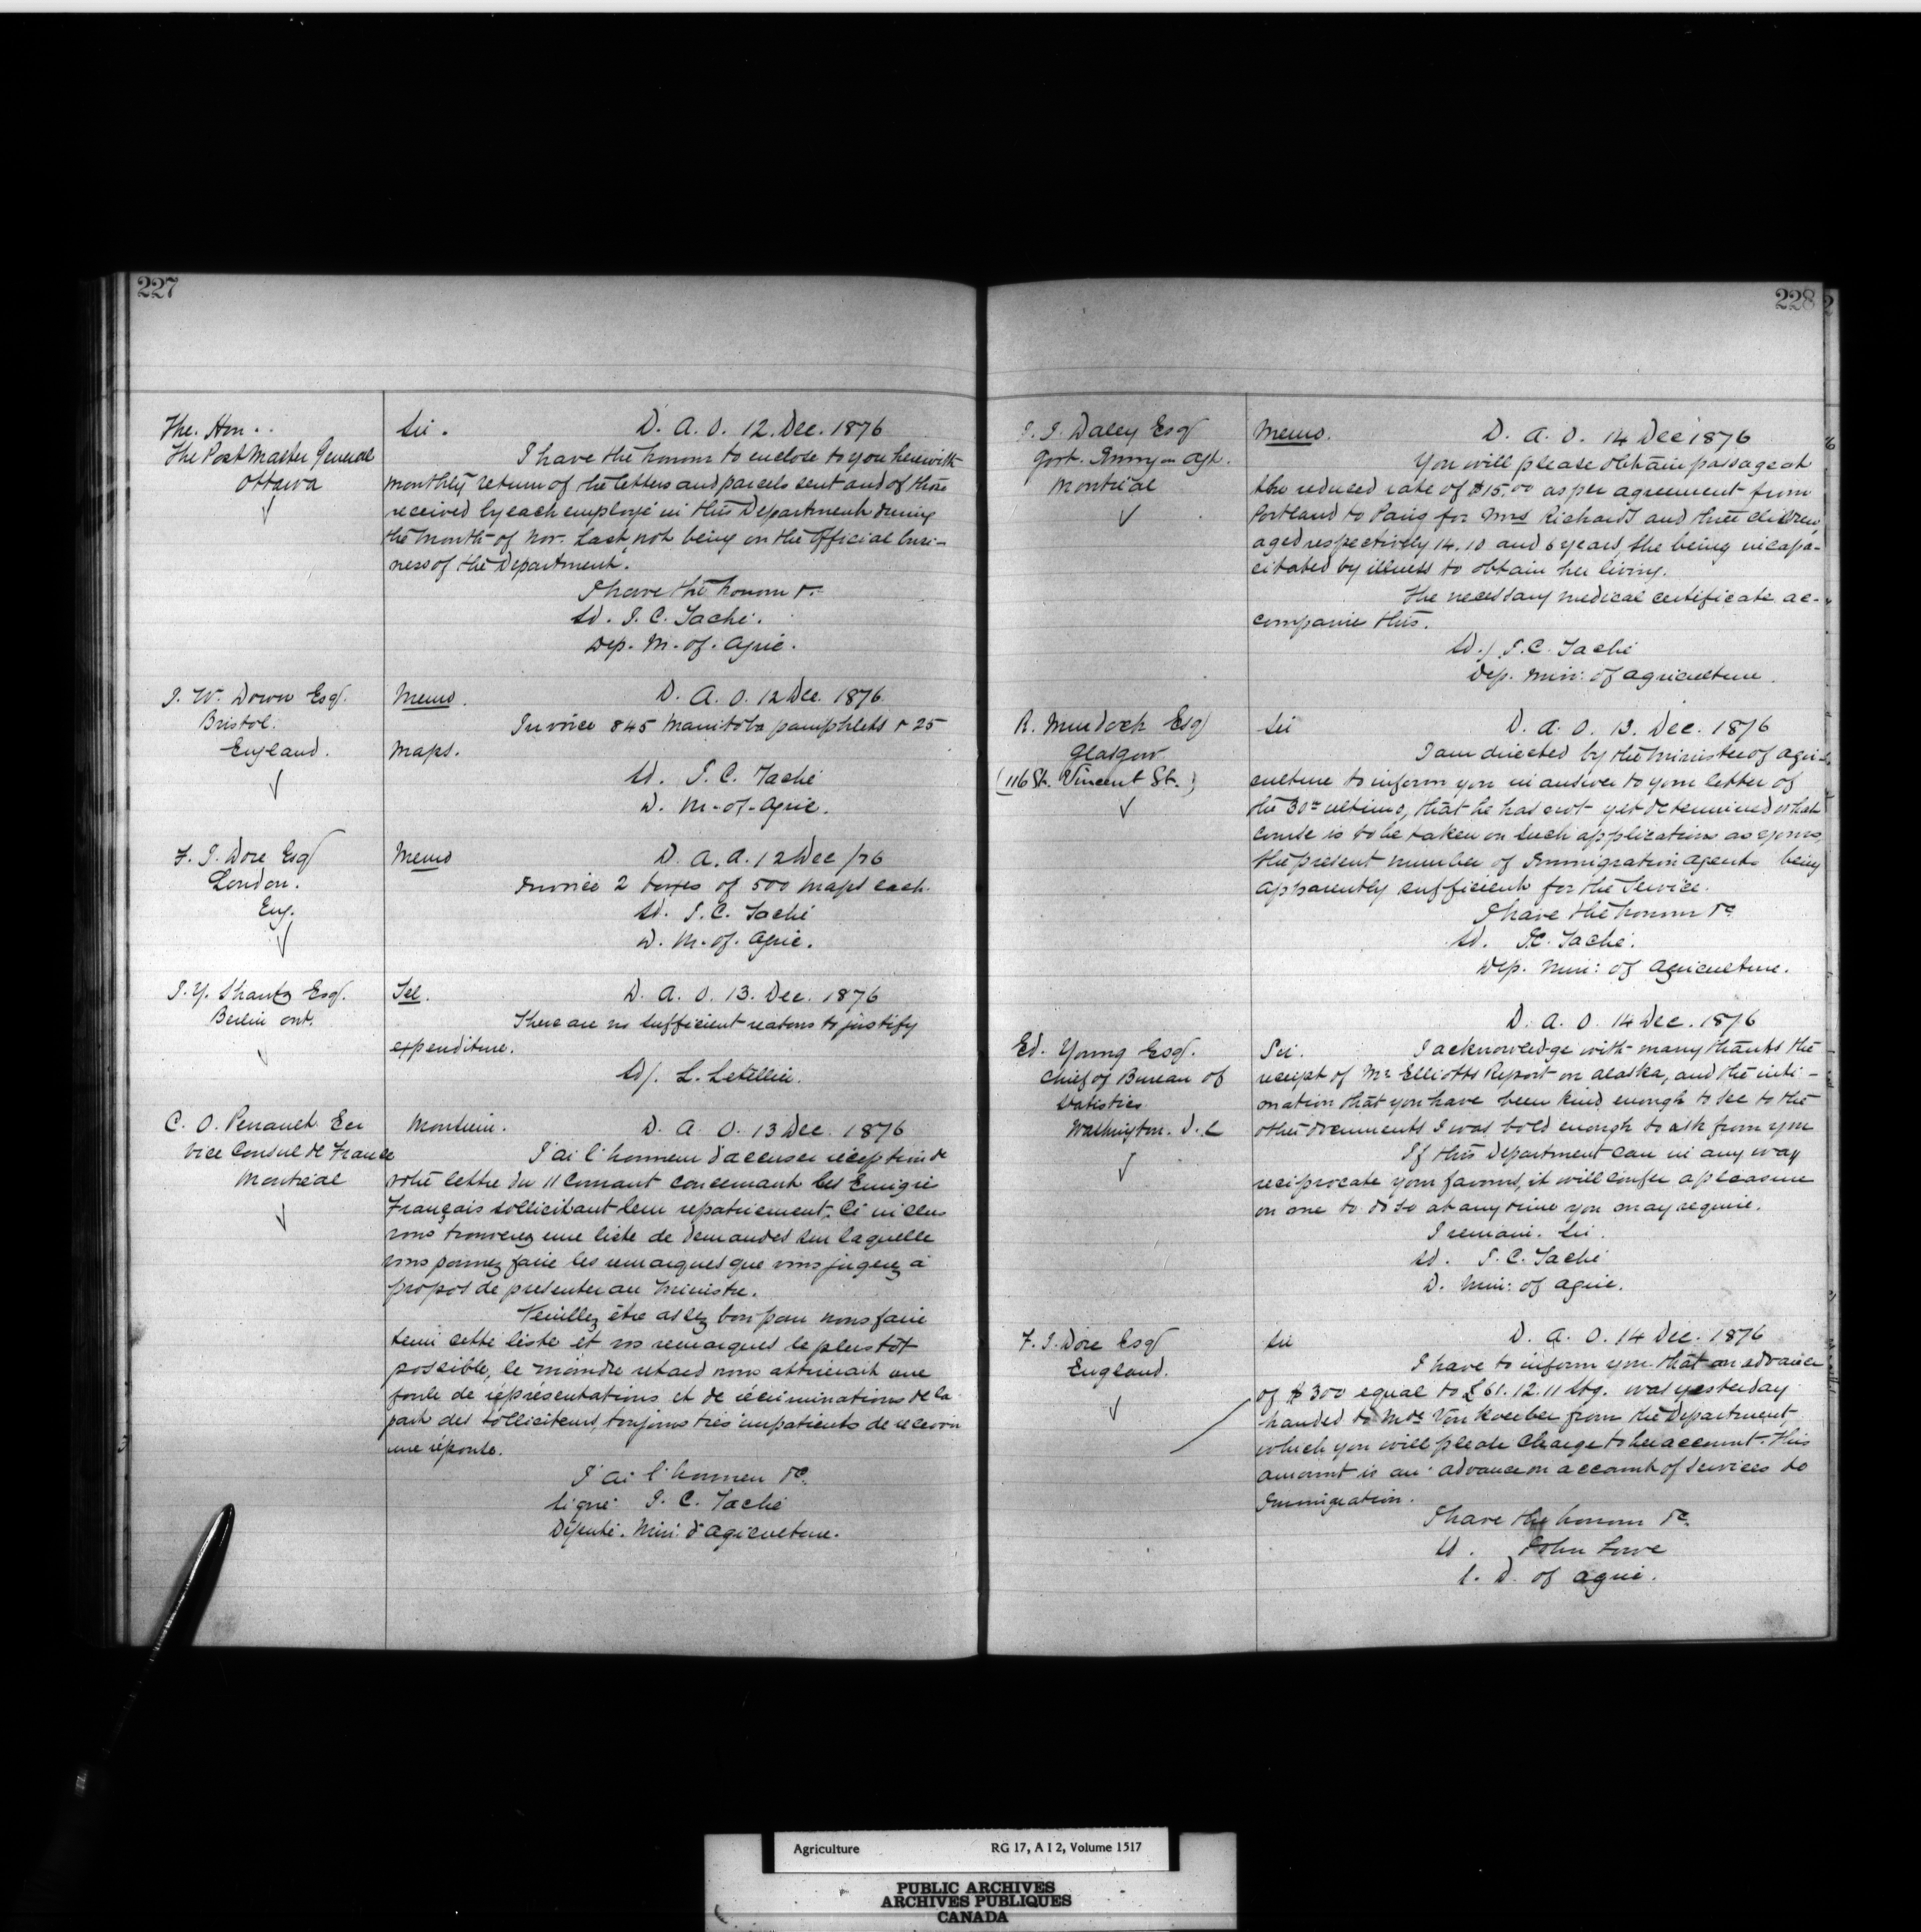 227
The. Hon..
The Post Master General
Ottawa
Sir. D. A. O. 12. Dec. 1876
I have the honour to enclose to you herewith
monthly return of the letters and parcels sent and of those
received by each employé in this Department during
the month of Nov. last not being on the Official busi-
ness of the Department.
I have the honour &c
Sd. J. C. Taché.
Dep. M. of. Agric.
J. W. Down Esq.
Bristol.
England.
Memo. D. A. O. 12 Dec. 1876
Invoice 845 Manitoba pamphlets & 25
maps.
Sd. J. C. Taché
D. M. of. Agric.
F. J. Dore Esq
London.
Eng.
Memo D. A. O. 12 Dec /76
Invoice 2 boxes of 500 maps each.
Sd. J. C. Taché
D. M. of. Agric.
J. Y. Shantz Esq.
Berlin Ont.
Tel. D. A. O. 13. Dec. 1876
There are no sufficient reasons to justify
expenditure.
Sd/. L. Letellier.
C. O. Perrault Ecr
Vice Consul de France
Montréal
Monsieur. D. A. O. 13 Dec. 1876
J'ai l'honneur d'accuser réception de
votre lettre du 11 Courant concernant les Emigré
Français sollicitant leur repatriement. Ci inclus
vous trouverez une liste de demandes sur laquelle
vous pourrez faire les remarques que vous jugerez à
propos de presenter au Ministre.
Veuillez être assez bon pour nous faire
tenir cette liste et vos remarques le plus tôt
possible, le moindre retard nous attirerait une
foule de représentations et de récriminations de la
part des solliciteurs, toujours très impatients de recevoir
une réponse.
J'ai l'honneur &c.
Signé J. C. Taché
Député. Min. d'Agriculture.
228
J. J. Daley Esq
Govt. Immgn Agt.
Montréal
Memo. D. A. O. 14 Dec 1876
You will please obtain passage at
the reduced rate of $15.00 as per agreement from
Portland to Paris for Mrs Richards and three children,
aged respectively 14. 10 and 6 years, she being incapa-
citated by illness to obtain her living.
The necessary medical certificate ac-
companies this.
Sd./ J. C. Taché
Dep. Min: of Agriculture.
R. Murdoch Esq
Glasgow
(116 St. Vincent St.)
Sir D. A. O. 13. Dec. 1876
I am directed by the Minister of Agri-
culture to inform you in answer to your letter of
the 30th ultimo, that he has not yet determined what
course is to be taken on such applications as yours,
the present number of Immigration Agents being
apparently sufficient for the Service.
I have the honour &c
Sd. J.C. Taché.
Dep. Min: of Agriculture.
D. A. O. 14 Dec. 1876
Ed. Young Esq.
Chief of Bureau of
Statistics
Washington. D. C
Sir. I acknowledge with many thanks the
receipt of Mr Elliotts Report on Alaska, and the inti-
mation that you have been kind enough to see to the
other documents I was bold enough to ask from you
If this Department can in any way
reciprocate your favours, it will confer a pleasure
on me to do so at any time you may require.
I remain. Sir.
Sd. J. C. Taché
D. Min: of Agric.
F. J. Dore Esq
England.
Sir D. A. O. 14 Dec. 1876
I have to inform you that an advance
of $300 equal to £61. 12. 11 Stg. was yesterday
handed to Mde Von Koerber from the Department,
which you will please charge to her account. This
amount is an advance on account of services to
Immigration.
I have the honour &c.
Sd. John Lowe
S. D. of Agric.
Agriculture RG 17, A I 2, Volume 1517
PUBLIC ARCHIVES
ARCHIVES PUBLIQUES
CANADA